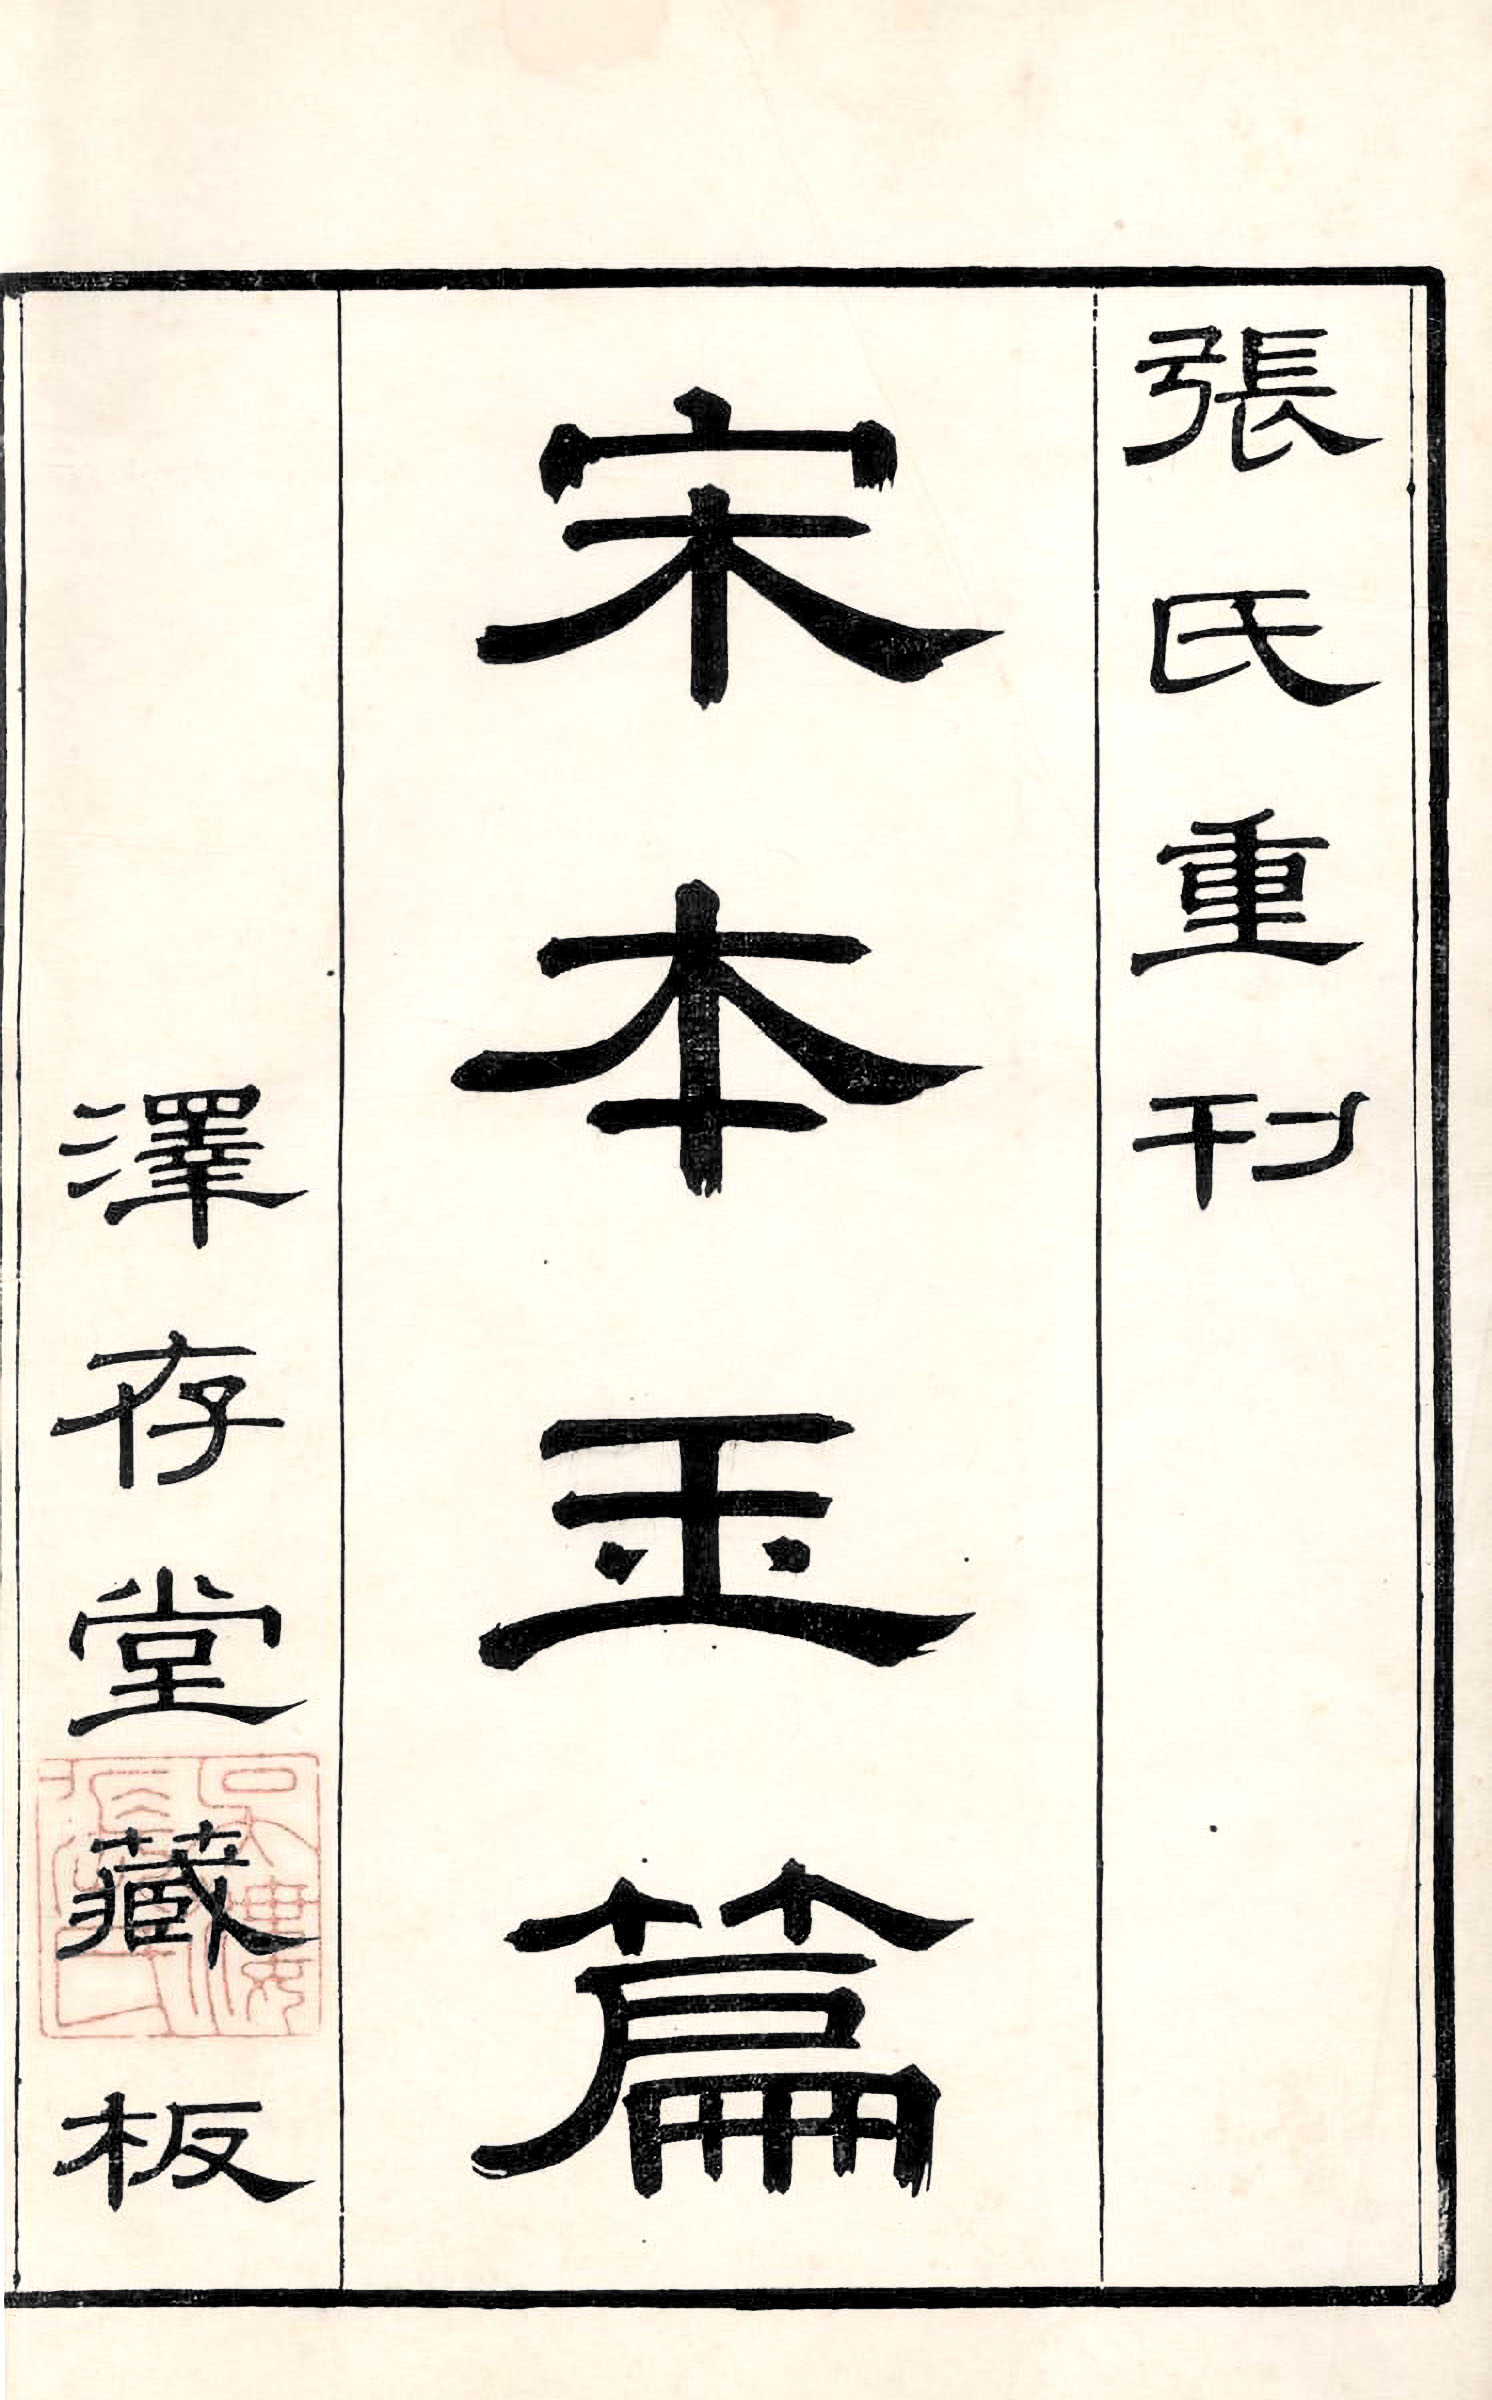 張氏重刊
宋本玉篇
澤存堂藏板